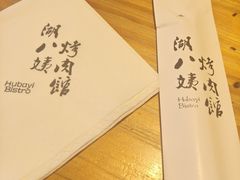 湖八姨
烤肉館
Hubayi
Bistro
湖八姨
烤肉館
Hubayi
Bistro